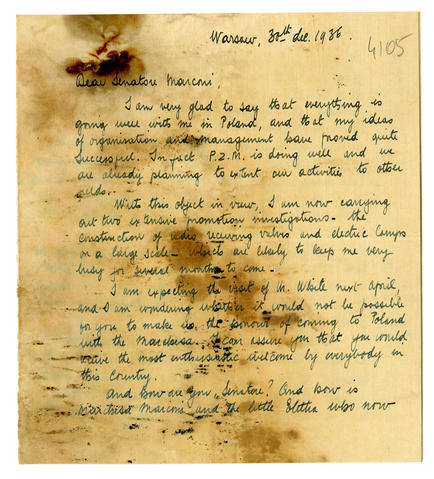 Warsaw, 30th dec. 1936.
4105
Dear Senatore Marconi,
I am very glad to say that everything is
going well with me in Poland, and that my ideas
of organisation and management have proved quite
successful. In fact P.Z.M. is doing well and we
are already planning to extent our activities to other
fields.
With this object in view, I am now carrying
out two extensive promotion investigations - the
construction of radio receiving valves and electric lamps
on a large scale - which are likely to keep me very
busy for several months to come -
I am expecting the visit of Mr. White next April,
and I am wondering whether it would not be possible
for you to make us the honour of coming to Poland
with the Marchesa. I can assure you that you would
receive the most enthusiastic welcome by everybody in
this Country.
And how are you, Senatore? And how is
Marchesa Marconi and the little Elettra who now